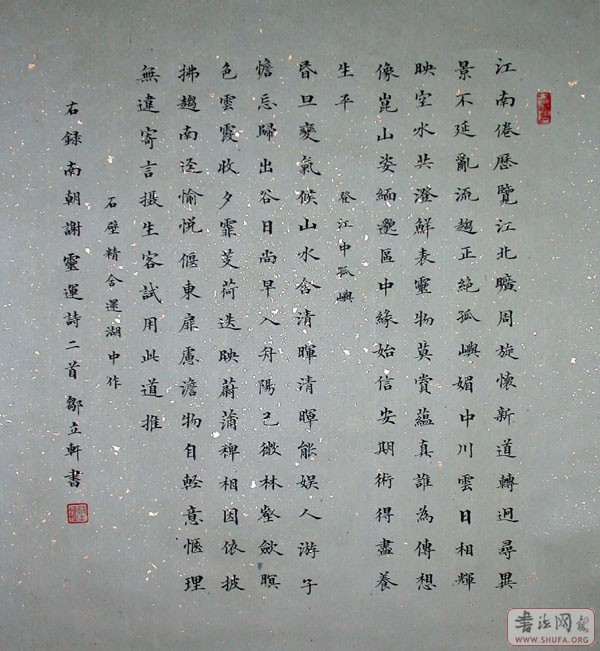 江南倦歷覽江北曠周旋懷新道轉迥尋異
景不延亂流趨正絕孤嶼媚中川雲日相輝
映空水共澄鮮表靈物莫賞蘊真誰為傳想
像崑山姿緬邈區中緣始信安期術得盡養
生平
登江中孤嶼
昏旦變氣候山水含清暉清暉能娛人游子
憺忘歸出谷日尚早入舟陽已微林壑斂暝
色雲霞收夕霏芰荷迭映蔚蒲稗相因依披
拂趨南逕愉悅偃東扉慮澹物自輕意愜理
無違寄言攝生客試用此道推
石壁精舍還湖中作
右錄南朝謝靈運詩二首鄒立軒書
書法网
WWW.SHUFA.ORG